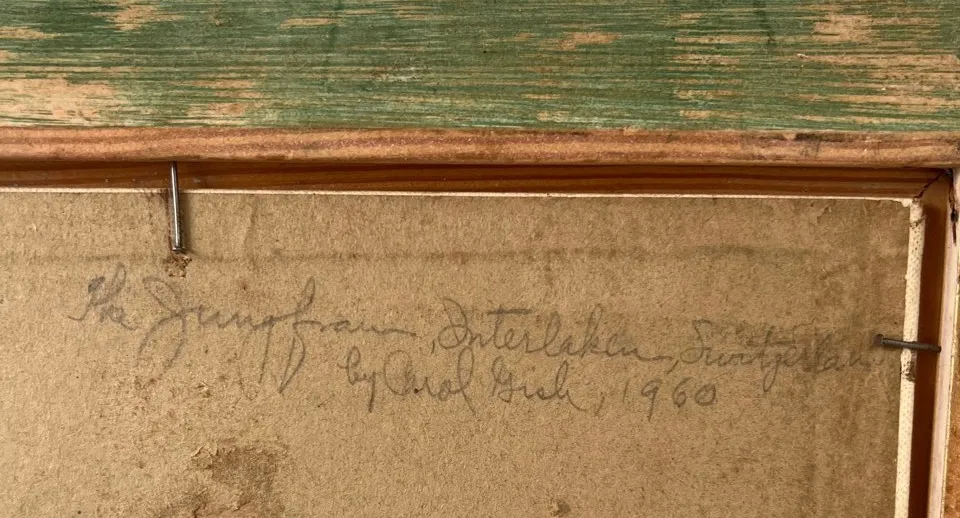 The Jungfrau, Interlaken, Switzerland
by Carol Gish, 1960